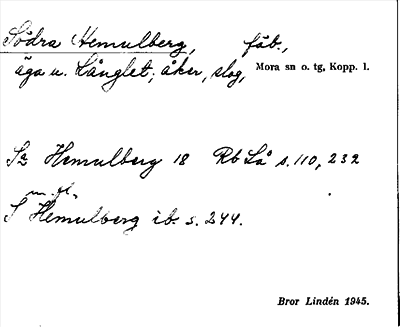 Södra Hemulberg, fäb.,
äga u. Långlet; åker, slog, Mora sn o. tg, Kopp. l.
Hemulberg 18 Rb Lå s. 110, 232
m. fl.,
S Hemulberg ib. s. 244.
Bror Lindén 1945.